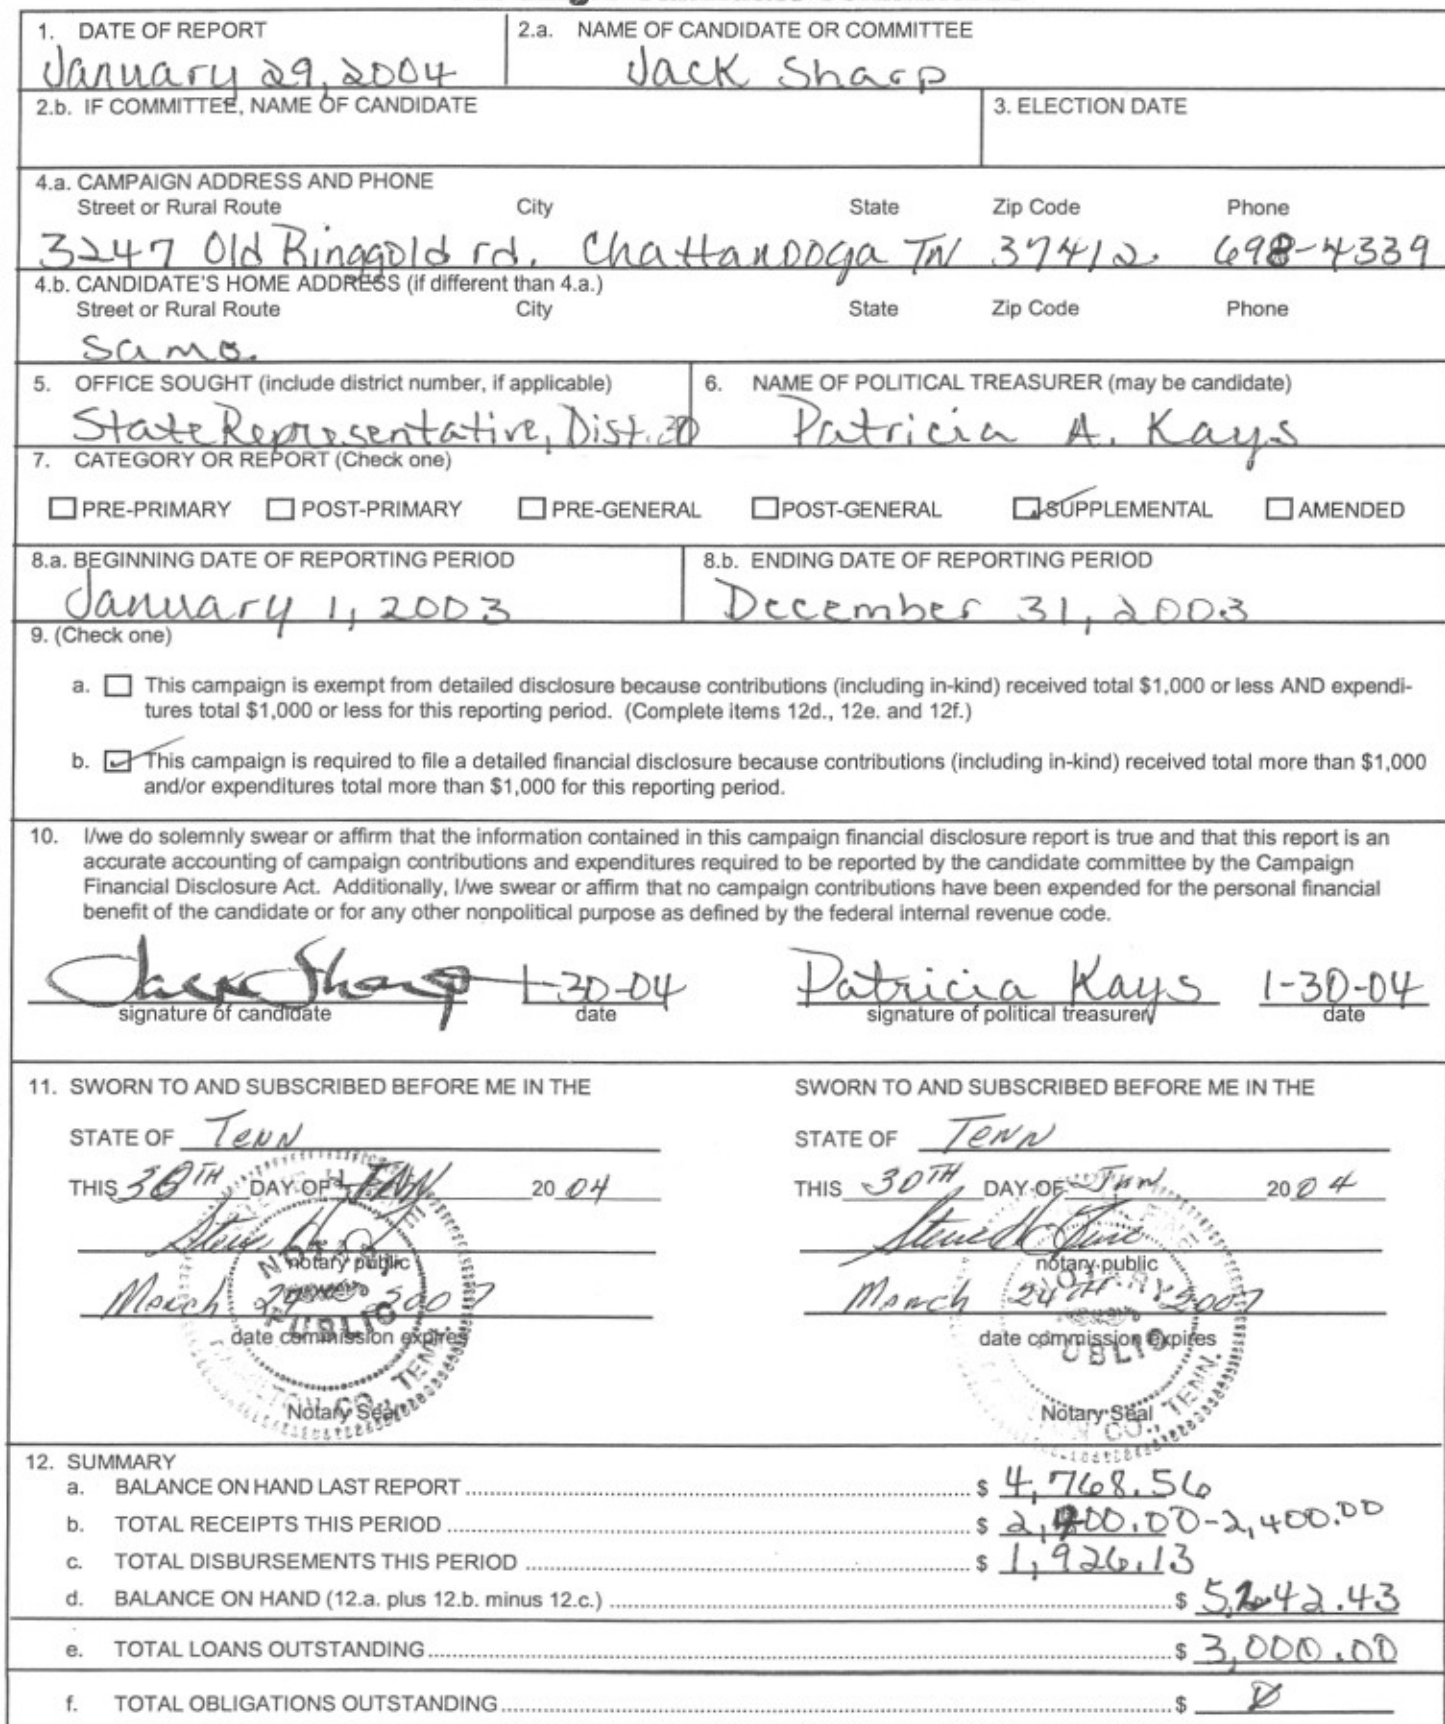 1. DATE OF REPORT
January 29, 2004
2.a. NAME OF CANDIDATE OR COMMITTEE
Jack Sharp
2.b. IF COMMITTEE, NAME OF CANDIDATE
3. ELECTION DATE
4.a. CAMPAIGN ADDRESS AND PHONE
Street or Rural Route City State Zip Code Phone
3247 Old Ringgold rd. Chattanooga TN 37412. 698-4339
4.b. CANDIDATE'S HOME ADDRESS (if different than 4.a.)
Street or Rural Route City State Zip Code Phone
same.
5. OFFICE SOUGHT (include district number, if applicable)
State Representative, Dist. 30
6. NAME OF POLITICAL TREASURER (may be candidate)
Patricia A. Kays
7. CATEGORY OR REPORT (Check one)
PRE-PRIMARY POST-PRIMARY PRE-GENERAL POST-GENERAL SUPPLEMENTAL AMENDED
8.a. BEGINNING DATE OF REPORTING PERIOD
January 1, 2003
8.b. ENDING DATE OF REPORTING PERIOD
December 31, 2003
9. (Check one)
a. This campaign is exempt from detailed disclosure because contributions (including in-kind) received total $1,000 or less AND expendi-
tures total $1,000 or less for this reporting period. (Complete items 12d., 12e. and 12f.)
b. This campaign is required to file a detailed financial disclosure because contributions (including in-kind) received total more than $1,000
and/or expenditures total more than $1,000 for this reporting period.
10. I/we do solemnly swear or affirm that the information contained in this campaign financial disclosure report is true and that this report is an
accurate accounting of campaign contributions and expenditures required to be reported by the candidate committee by the Campaign
Financial Disclosure Act. Additionally, I/we swear or affirm that no campaign contributions have been expended for the personal financial
benefit of the candidate or for any other nonpolitical purpose as defined by the federal internal revenue code.
Jack Sharp 1-30-04 Patricia Kays 1-30-04
signature of candidate date signature of political treasurer date
11. SWORN TO AND SUBSCRIBED BEFORE ME IN THE
STATE OF Tenn
THIS 30TH DAY OF JAN 2004
notary public
March 24 2007
date commission expires
Notary Seal
NOTARY PUBLIC
CO., TENN.
SWORN TO AND SUBSCRIBED BEFORE ME IN THE
STATE OF Tenn
THIS 30TH DAY OF Jan 2004
notary public
March 24TH 2007
date commission expires
Notary Seal
CO., TENN.
12. SUMMARY
a. BALANCE ON HAND LAST REPORT $ 4,768.56
b. TOTAL RECEIPTS THIS PERIOD $ 2,400.00-2,400.00
c. TOTAL DISBURSEMENTS THIS PERIOD $ 1,926.13
d. BALANCE ON HAND (12.a. plus 12.b. minus 12.c.) $ 5,242.43
e. TOTAL LOANS OUTSTANDING $ 3,000.00
f. TOTAL OBLIGATIONS OUTSTANDING $ 0